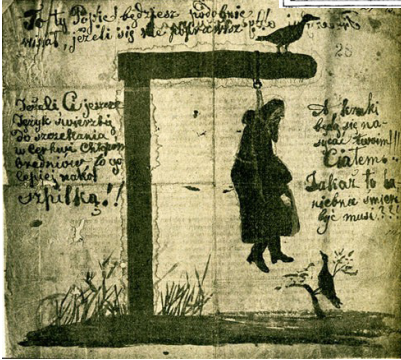 To ty Popie! będziesz podobnie
wisiał, jeżeli się nie poprawisz
28
Jeżeli Ci jeszcze
Język świerzbi
do szczekania
w Cerkwi Chłopom
bredniów, to go
lepiej nakol
szpilką!!
A kruki
będą się na-
sycać twoim!!!
Ciałem.
Jakaż to ha-
niebna śmierć
być musi???